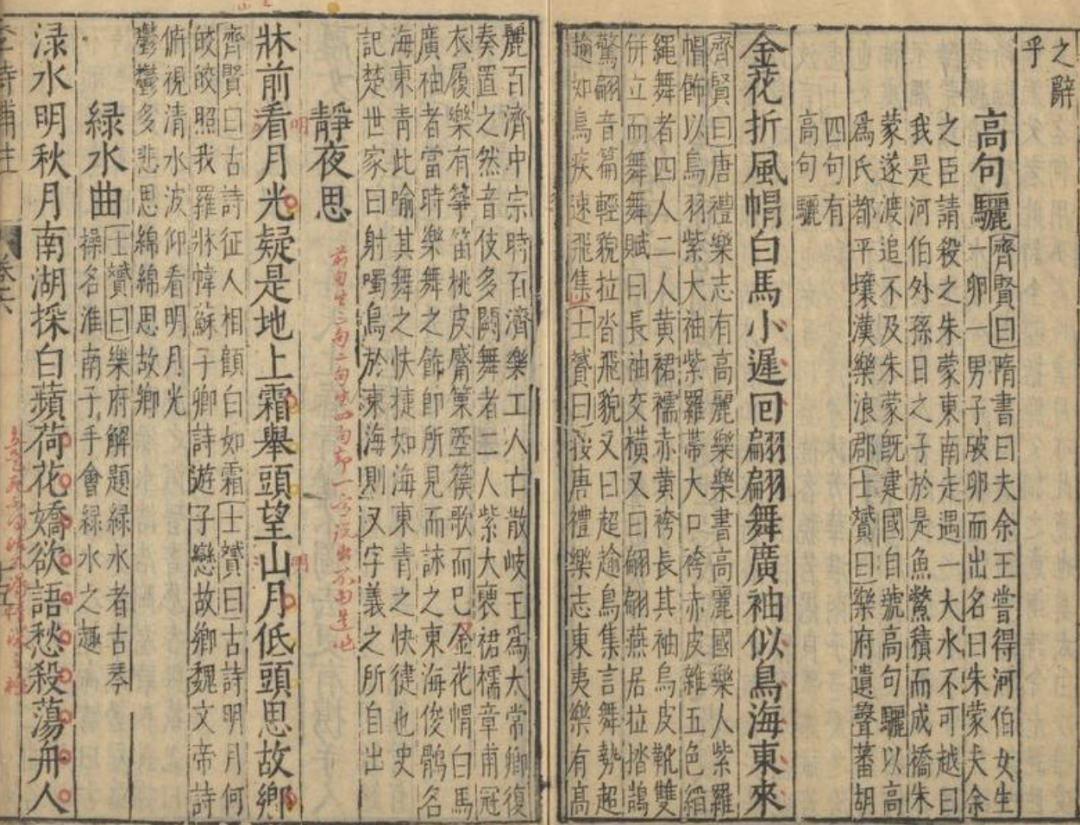 之辭
乎
高句驪
齊賢曰隋書曰夫余王嘗得河伯女生
一卵一男子破卵而出名曰朱蒙夫余
之臣請殺之朱蒙東南走遇一大水不可越曰
我是河伯外孫日之子於是魚鱉積而成橋朱
蒙遂渡追不及朱蒙旣建國自號高句驪以高
爲氏都平壤漢樂浪郡士贇曰樂府遺聲蕃胡
四句有
高句驪
金花折風帽白馬小遲回翩翩舞廣袖似鳥海東來
齊賢曰唐禮樂志有高麗樂樂書高麗國樂人紫羅
帽飾以鳥羽紫大袖紫羅帶大口袴赤皮鞋五色縚
繩舞者四人二人黄裙襦赤黄袴長其袖烏皮靴雙
併立而舞舞賦曰長袖交橫又曰翩翩燕居拉㳫鵠
驚翩音篇輕貌拉沓飛貌又曰超逾鳥集言舞勢超
逾如鳥疾速飛集士贇曰按唐禮樂志東夷樂有高
麗百濟中宗時百濟樂工人亡散岐王爲太常卿復
奏置之然音伎多闕舞者二人紫大裒裙襦章甫冠
衣履樂有箏笛桃皮觱篥箜篌歌而已金花帽白馬
廣袖者當時樂舞之飾即所見而詠之東海俊鶻名
海東青此喻其舞之快捷如海東青之快健也史
記楚世家曰射噣鳥於東海則又字義之所自出
靜夜思
牀前看月光疑是地上霜舉頭望山月低頭思故鄉
明
明
齊賢曰古詩征人相顧白如霜士贇曰古詩明月何
皎皎照我羅牀幃蘇子卿詩遊子戀故鄉魏文帝詩
俯視清水波仰看明月光
鬱鬱多悲思綿綿思故鄉
綠水曲
士贇曰樂府解題綠水者古琴
操名淮南子手會綠水之趣
淥水明秋月南湖採白蘋荷花嬌欲語愁殺蕩舟人
李詩補注
卷六